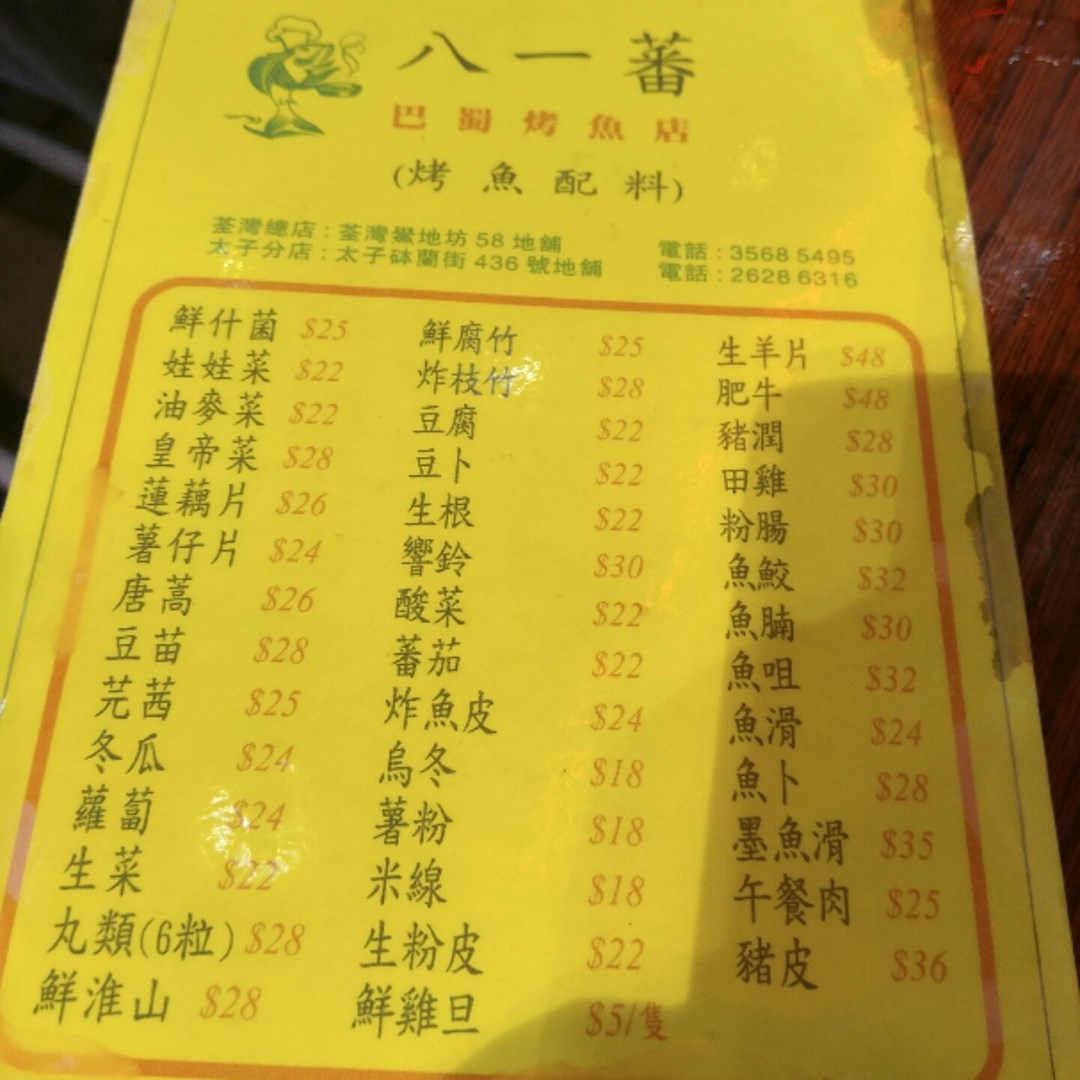 八一蕃
巴蜀烤魚店
(烤魚配料)
荃灣總店：荃灣鱟地坊 58 地舖 電話：3568 5495
太子分店：太子砵蘭街 436 號地舖 電話：2628 6316
鮮什菌 $25
娃娃菜 $22
油麥菜 $22
皇帝菜 $28
蓮藕片 $26
薯仔片 $24
唐蒿 $26
豆苗 $28
芫茜 $25
冬瓜 $24
蘿蔔 $24
生菜 $22
丸類(6粒) $28
鮮淮山 $28
鮮腐竹 $25
炸枝竹 $28
豆腐 $22
豆卜 $22
生根 $22
響鈴 $30
酸菜 $22
蕃茄 $22
炸魚皮 $24
烏冬 $18
薯粉 $18
米線 $18
生粉皮 $22
鮮雞旦 $5/隻
生羊片 $48
肥牛 $48
豬潤 $28
田雞 $30
粉腸 $30
魚鮫 $32
魚腩 $30
魚咀 $32
魚滑 $24
魚卜 $28
墨魚滑 $35
午餐肉 $25
豬皮 $36